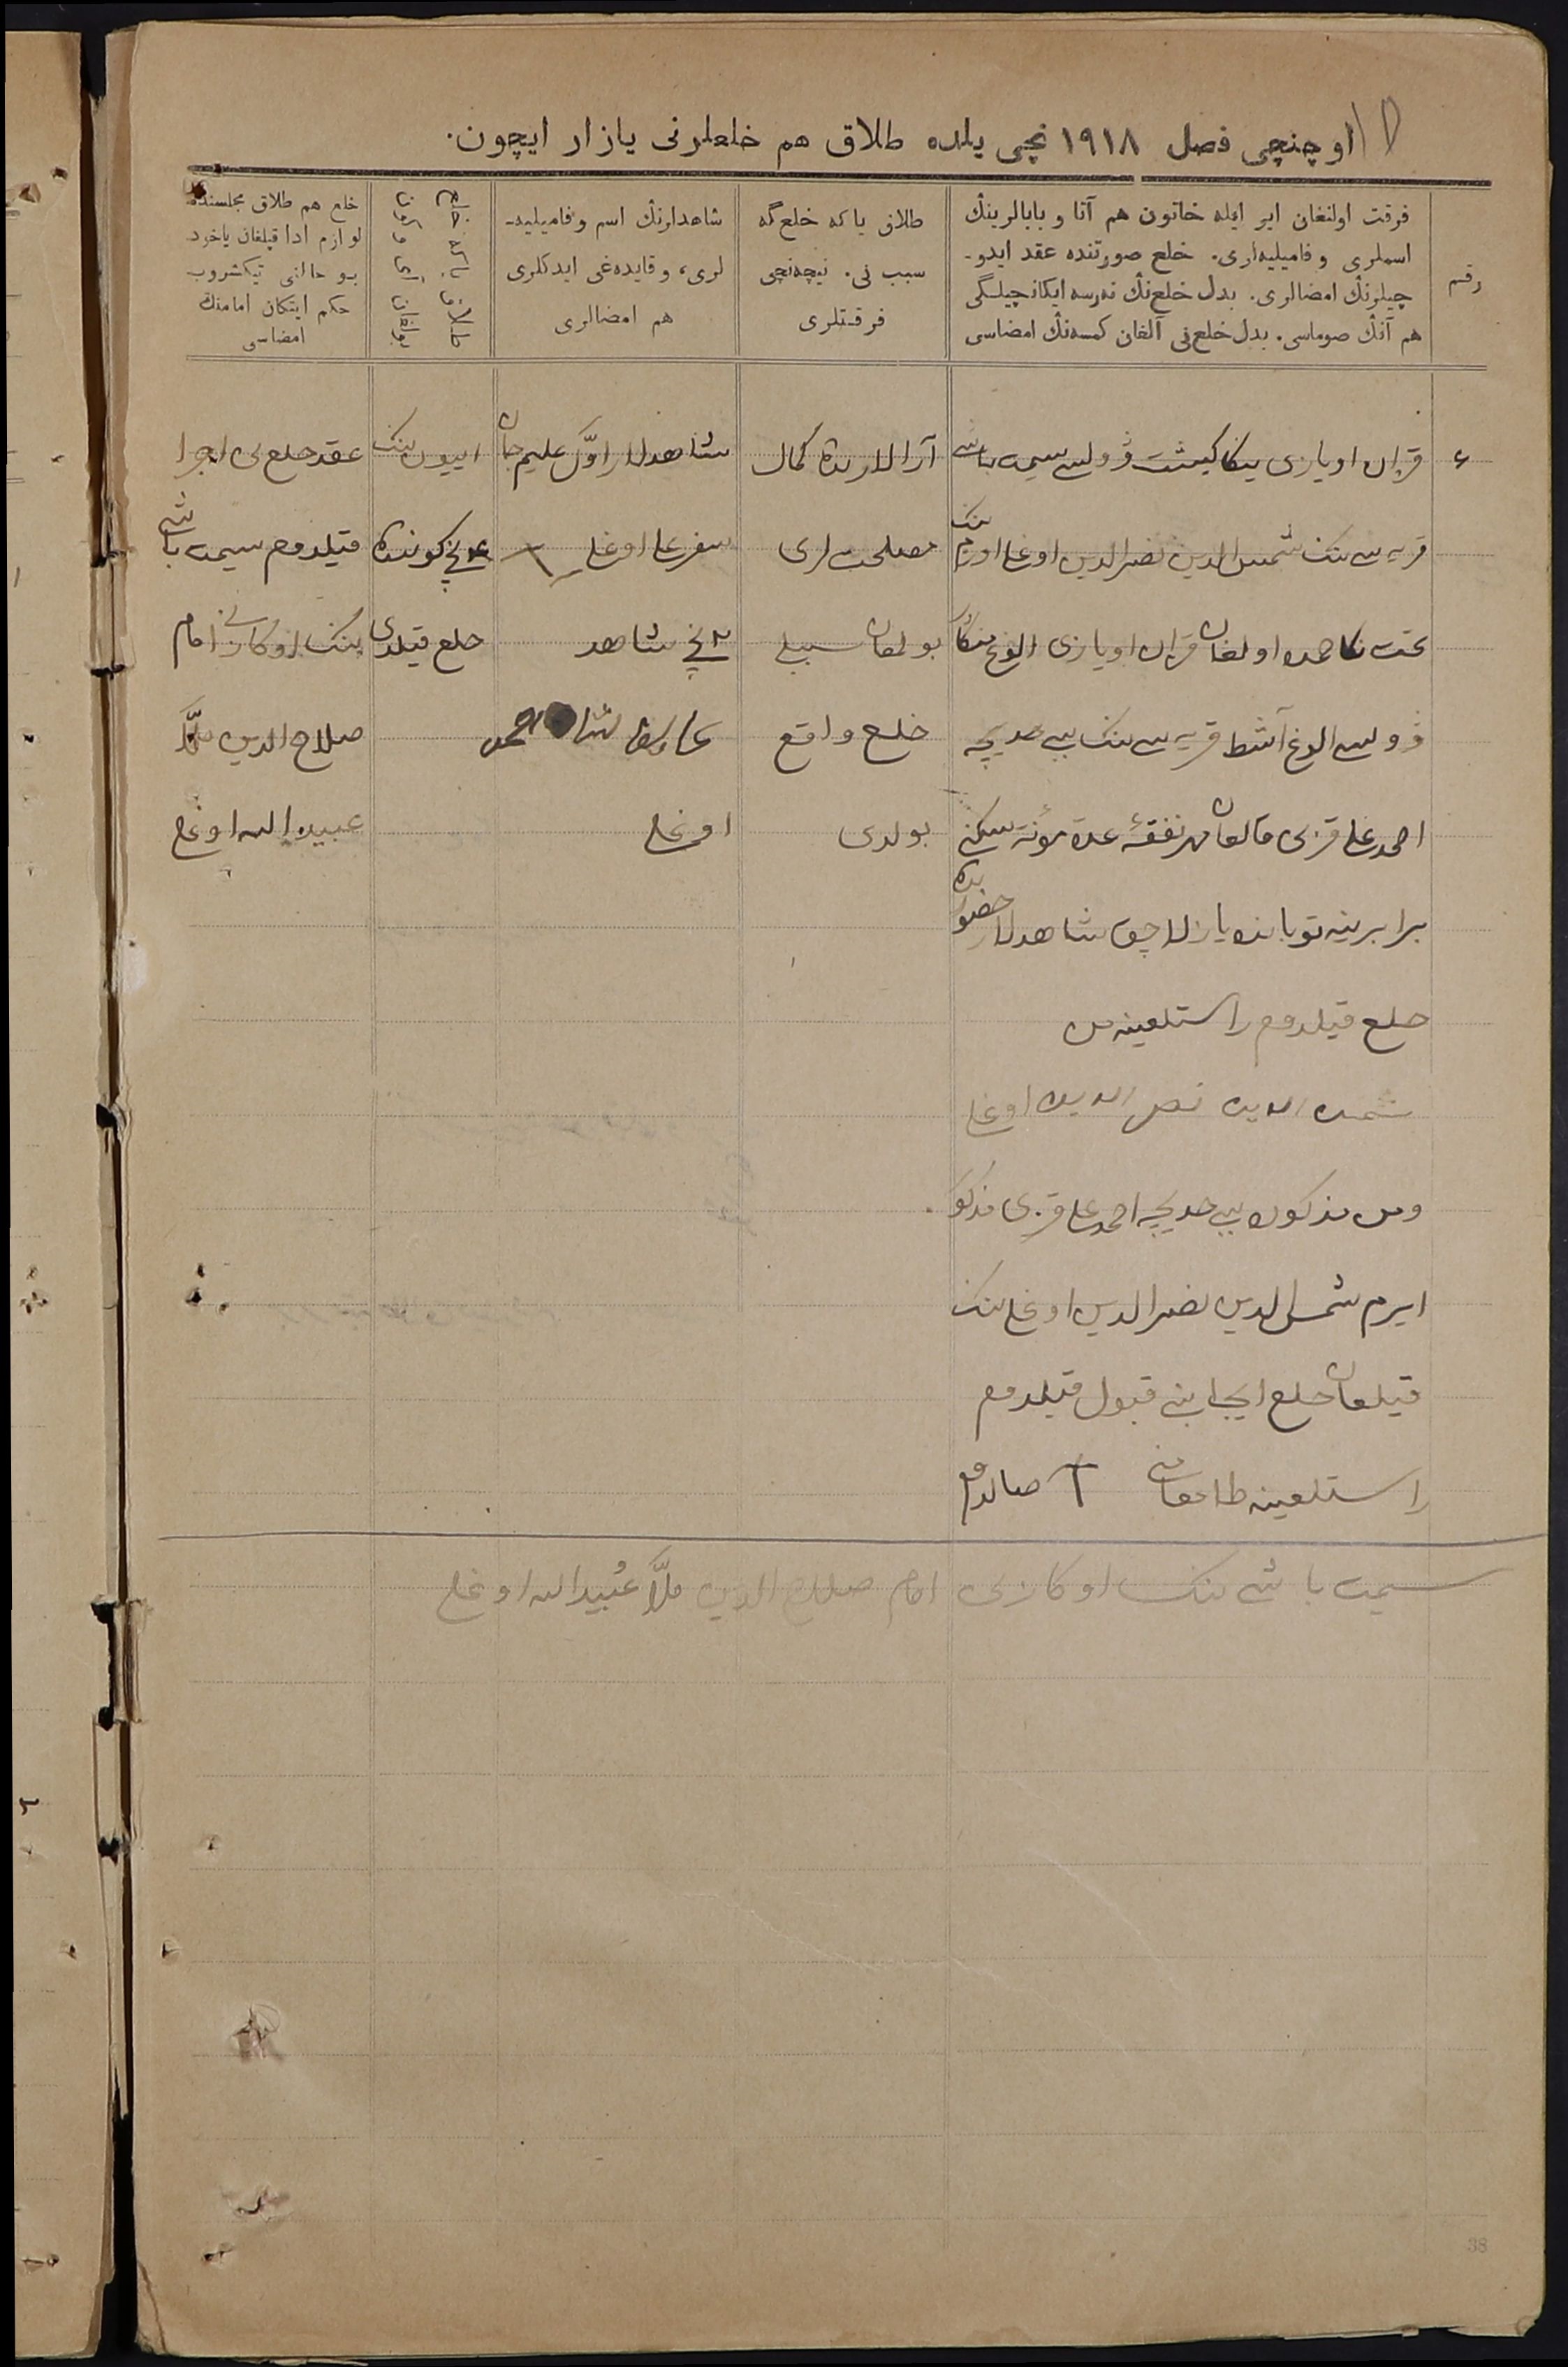 اوچنچی فصل ١٩١٨ نچی یلده طلاق هم خلعلرنی یازار ایچون.
رقم
فرقت اولنغان ایر ایله خاتون هم آتا و بابالرینڭ
اسملری و فامیلیه‌لری. خلع صورتنده عقد ایدو-
چیلرنڭ امضالری. بدل خلع‌نڭ نه‌رسه ایکانچیلگی
هم آنڭ صوماسی. بدل خلع‌نی آلغان کمسه‌نڭ امضاسی
طلاق یا که خلع گه
سبب نی. نیچه‌نچی
فرقتلری
شاهدلرنڭ اسم و فامیلیه-
لری، و قایده‌غی ایدکلری
هم امضالری
خلع هم طلاق مجلسنده
لوازم ادا قیلغان یاخود
بو حالنی تیکشروب
حکم ایتکان امامنڭ
امضاسی
قزان اویازی ڤولسی سیمت باشی
قریه سی ننک شمس الدین نصرالدین اوغلی اوزم ننک
تحت نکاحمده اولغان قزان اویازی الوغ مینگار
ڤولسی الوغ آشط قریه سی ننک بیبی خدیجه
احمدعلی قزی قالغان مهر نفقهٔ عدة مؤنة سکنی
برابرینه توبانده یازلاچق شاهدلار حضورنده
خلع قیلدوم راستلغینه من
شمس الدین نصر الدین اوغلی
ومن مذکوره بیبی خدیجه احمدعلی قزی مذکور
ایرم شمس الدین نصرالدین اوغلی ننک
قیلغان خلع ایجابنی قبول قیلدوم
راستلغینه طامغامنی صالدوم
آرالارنده کمال
مصلحت لری
بولغان سببلی
خلع واقع
بولدی
شاهدلار اوّل علیم جان
سفرعلی اوغلی
٢ نچی شاهد
شاه احمد
اوغلی
اییون ننک
نچی کوننده
خلع قیلدی
عقد خلع نی اجرا
قیلدوم سیمت باشی
ننک اوکازنی امام
صلاح الدین ملّا
عبیدالله اوغلی
سیمت باشی ننک اوکازنی امام صلاح الدین ملّا عُبیدالله اوغلی
38